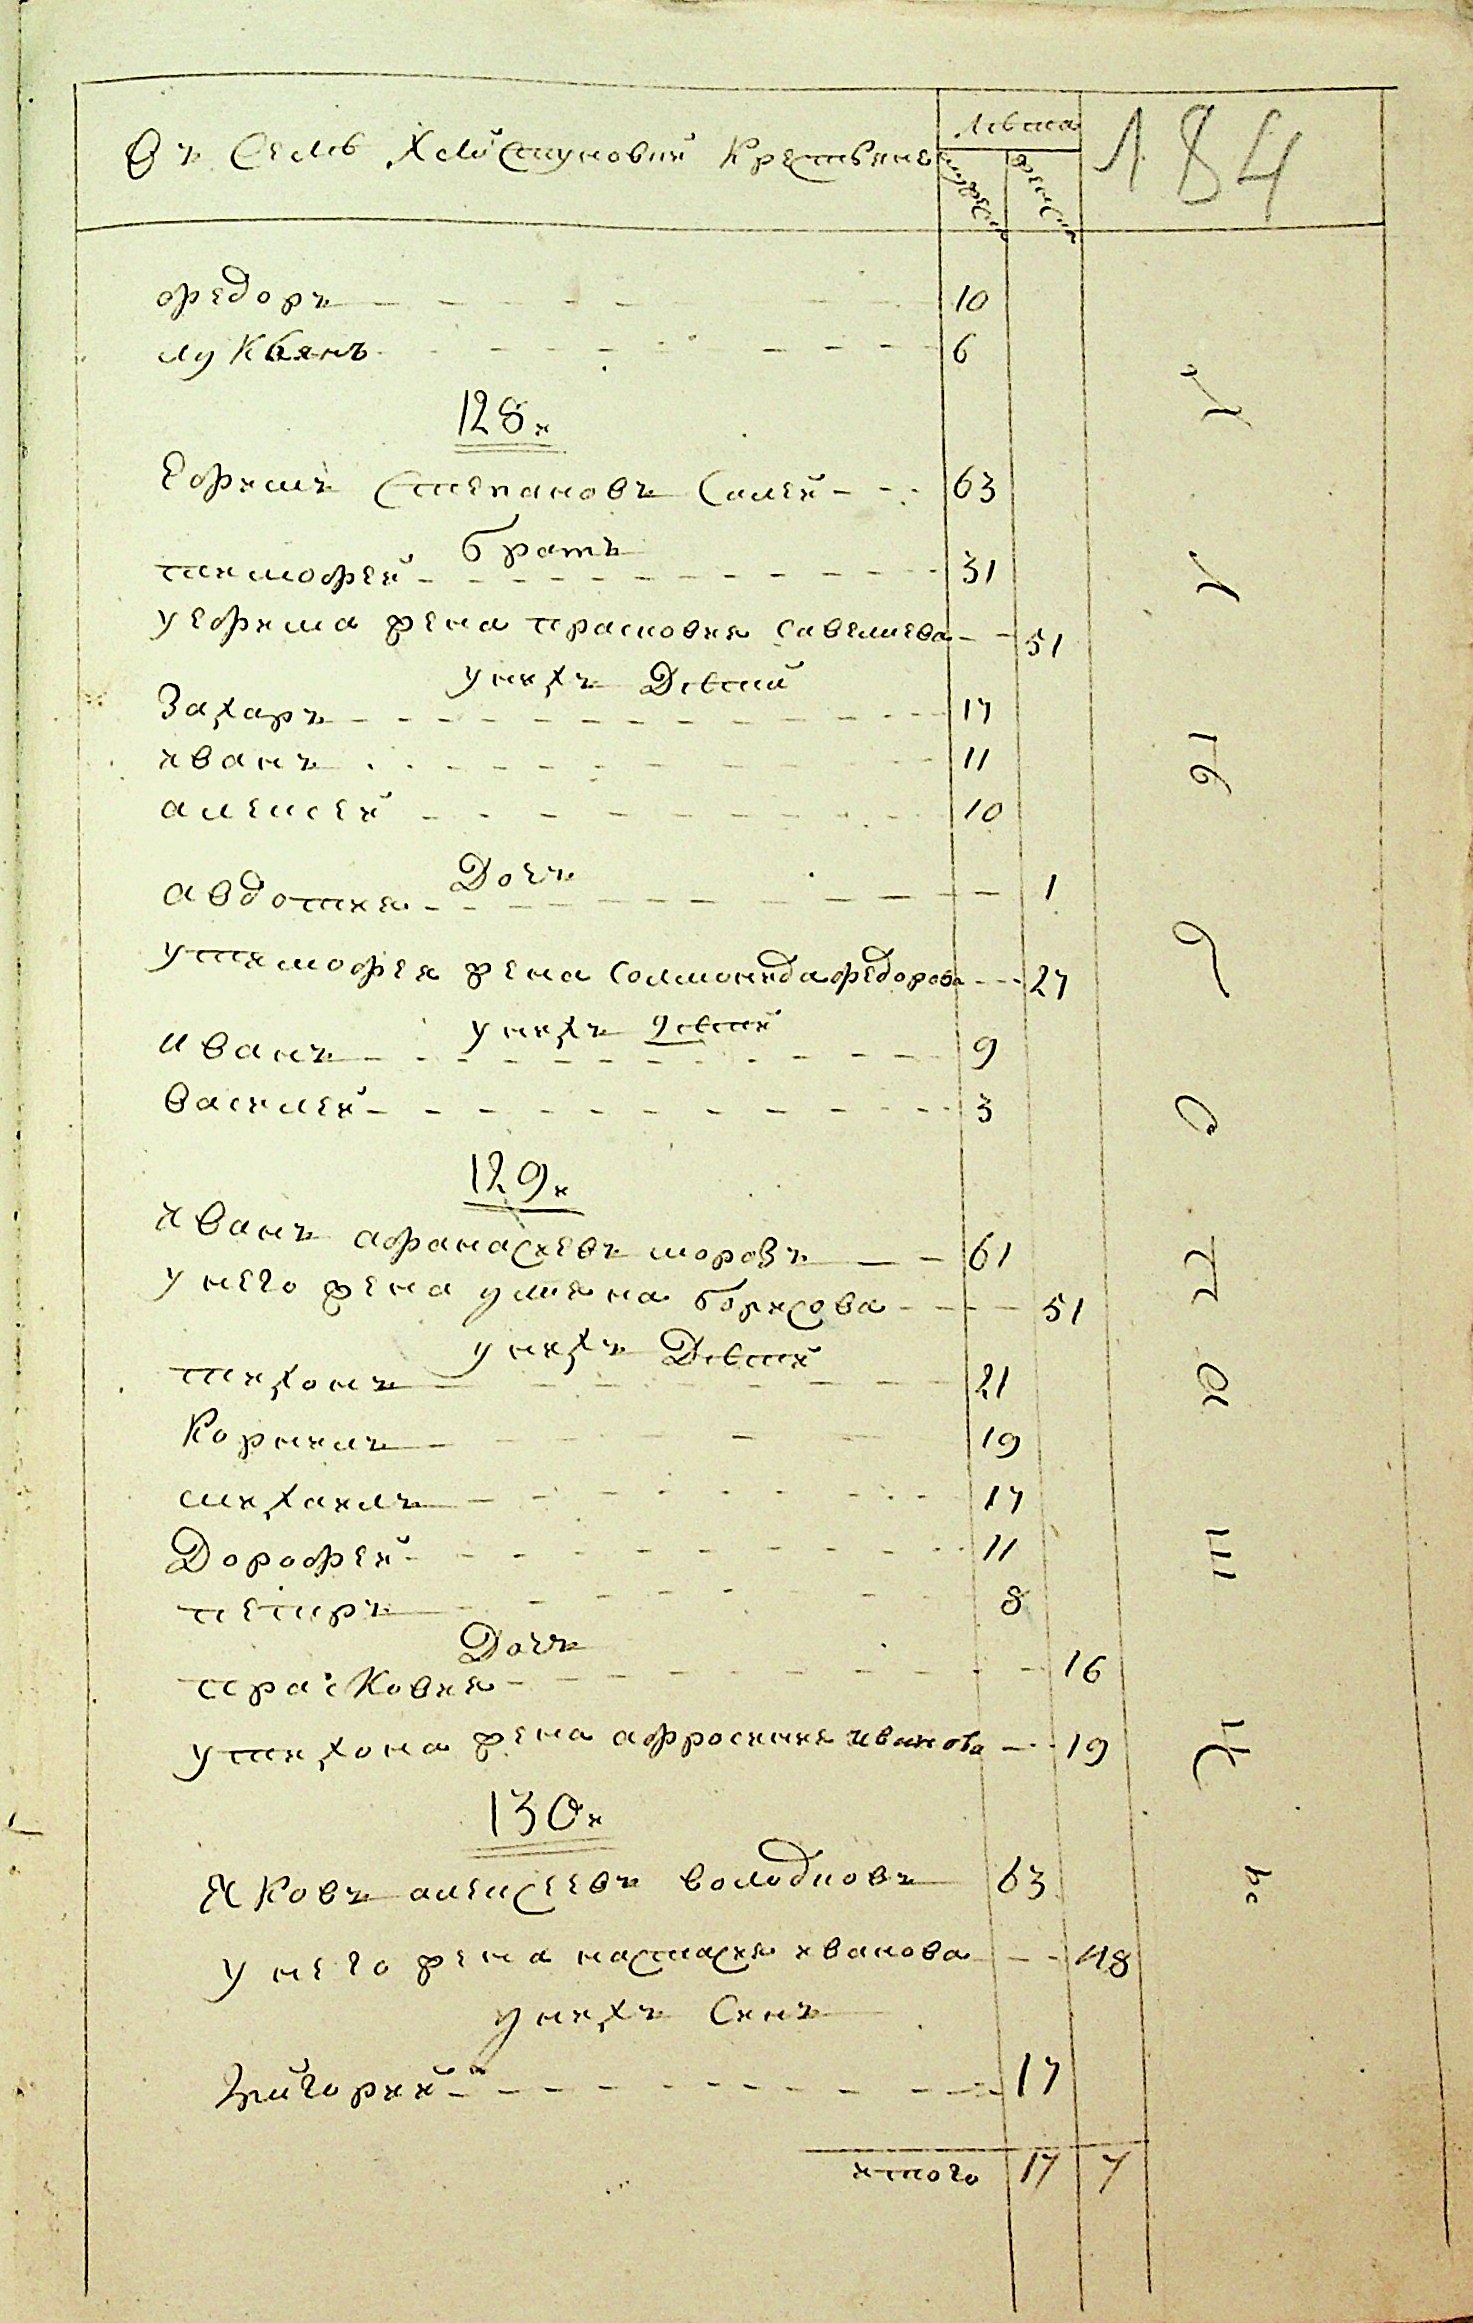 Въ Селѣ Хлыстуновки Крестьяне
Лѣта
мужеска
женска
184
Федоръ 10
Лукьянъ 6
128.
Ефимъ Степановъ Салей 63
братъ
тимофей 31
у Ефима жена прасковья савелиева 51
у нихъ Дѣти
Захаръ 17
иванъ 11
алексей 10
Дочь
авдотия 1
у тимофея жена соломонида федорова 27
у нихъ дѣти
иванъ 9
василей 3
129.
иванъ афанасиевъ морозъ 61
у него жена улияна борисова 51
у нихъ Дѣти
тихонъ 21
Корнилъ 19
михаилъ 17
Дорофей 11
петръ 8
Дочь
прасковия 16
у тихона жена афросиния иванова 19
130.
Яковъ алексеевъ володковъ 63
у него жена настасия иванова 48
у нихъ Синъ
Григорий 17
итого 17 7